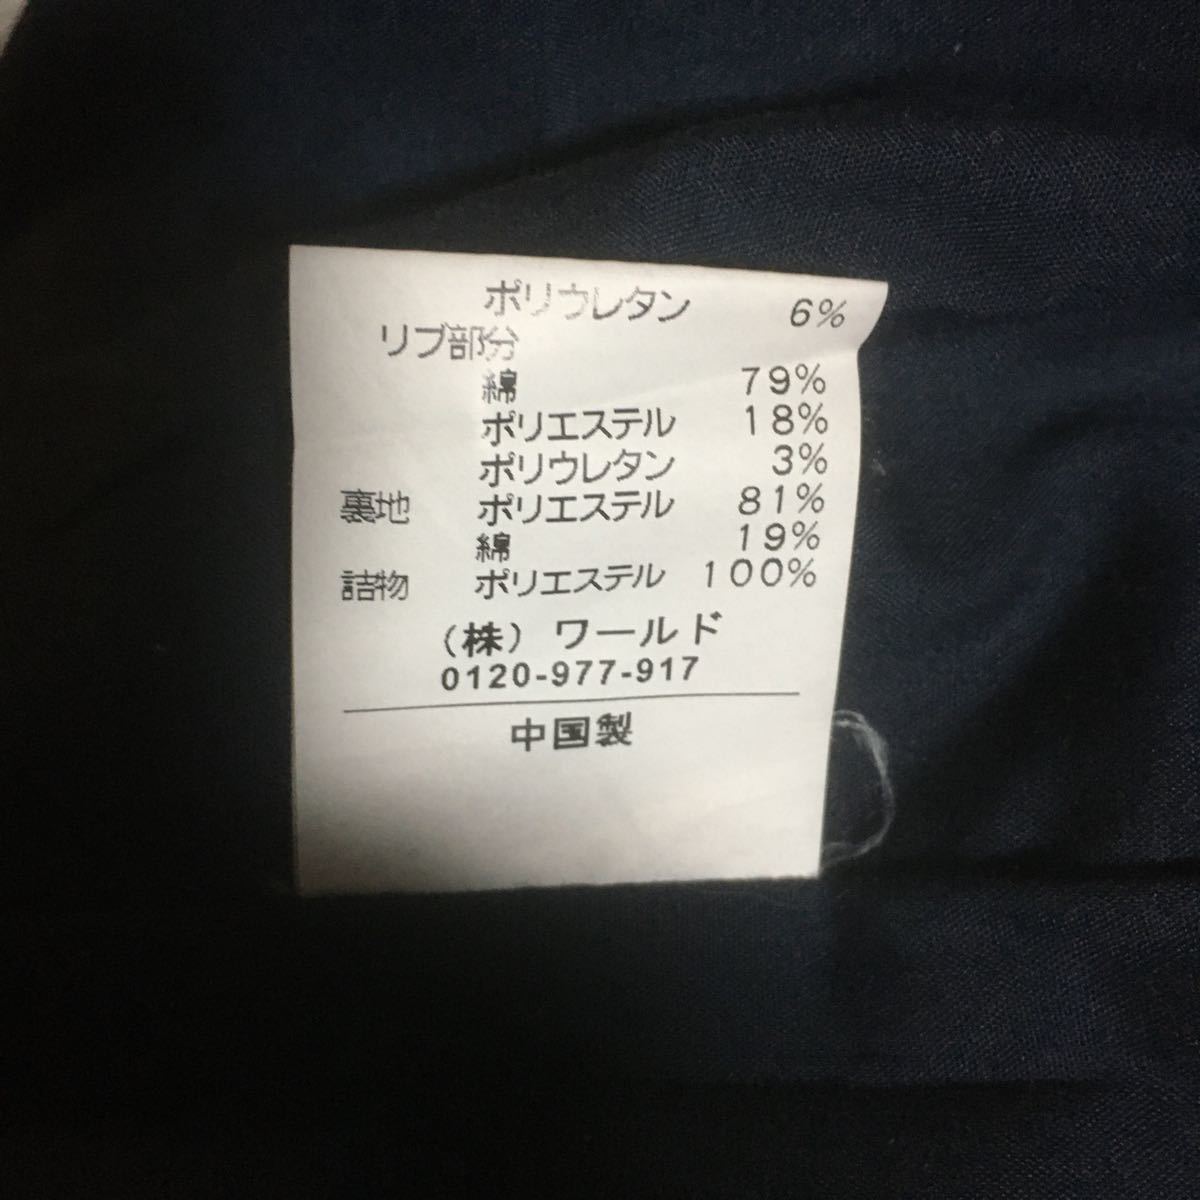 ポリウレタン 6%
リブ部分
綿 79%
ポリエステル 18%
ポリウレタン 3%
裏地 ポリエステル 81%
綿 19%
詰物 ポリエステル 100%
(株) ワールド
0120-977-917
中国製